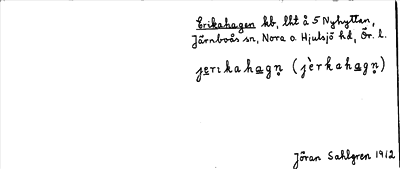 Erikahagen hb, lht å 5 Nyhyttan,
Järnboås sn, Nora o. Hjulsjö hd, Ör. l.
jerikahagn̥ (jèrkahagn̥)
Jöran Sahlgren 1912